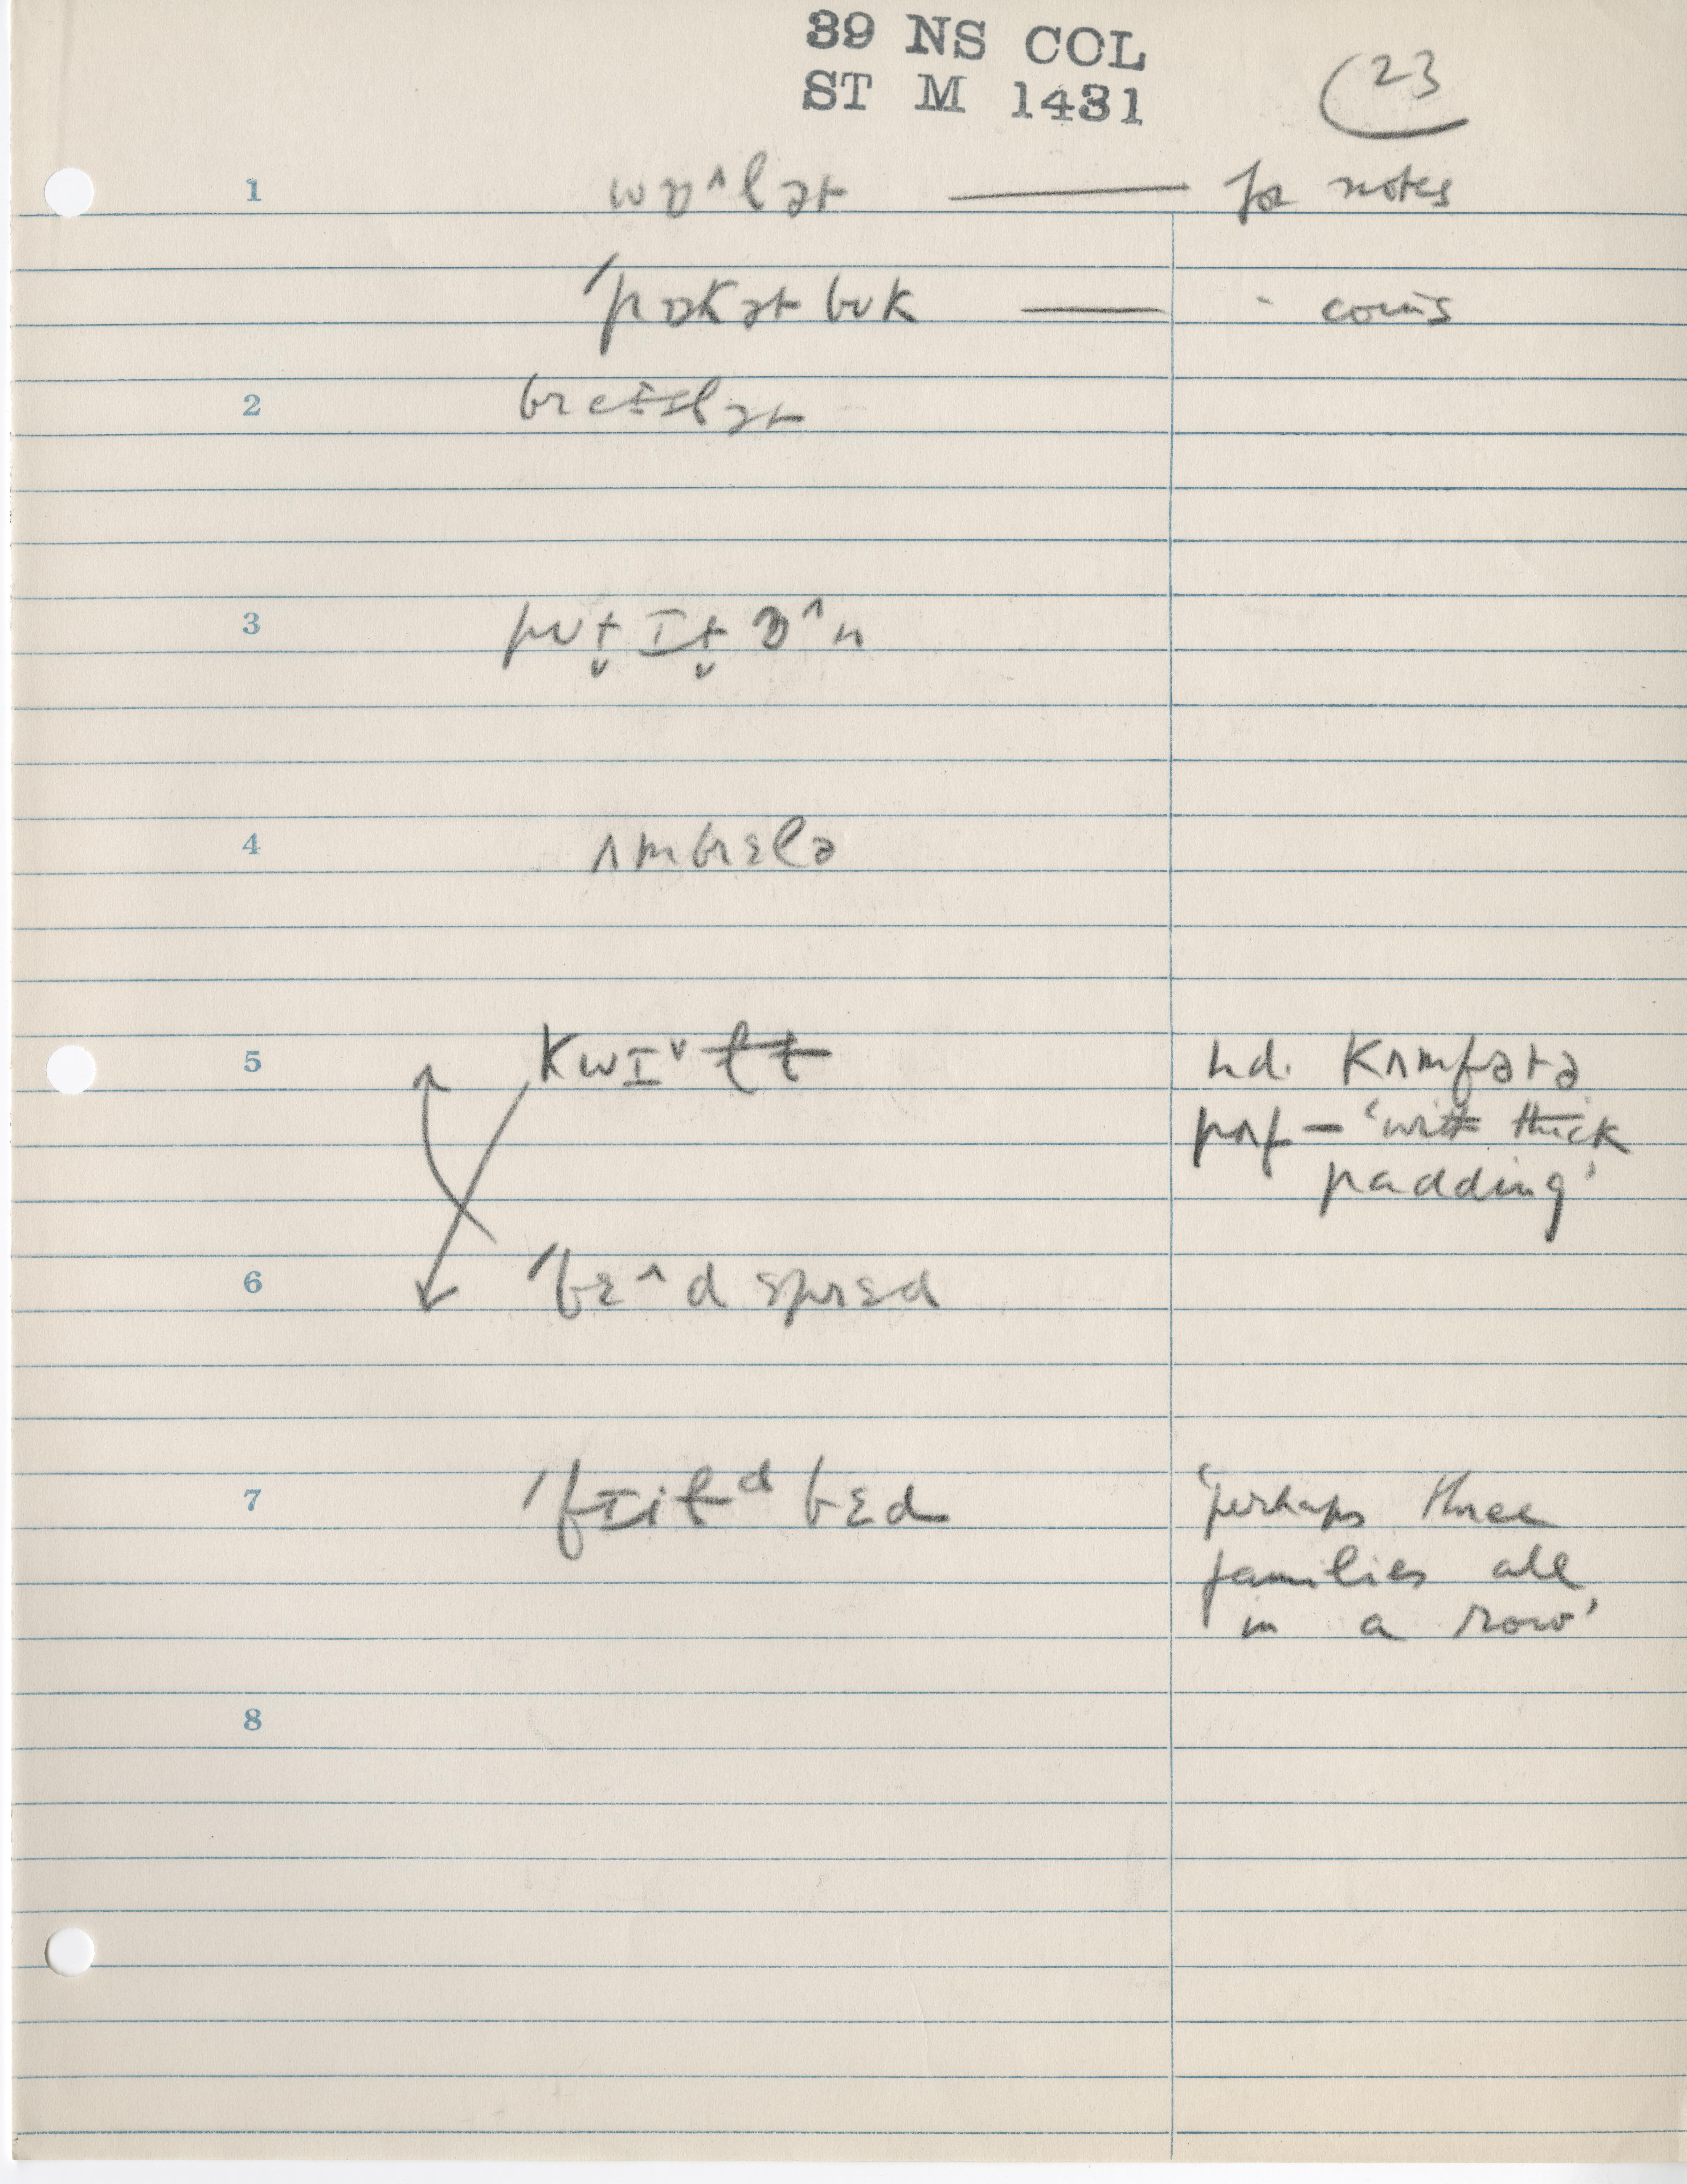 39 NS COL
ST M 1431
23
1 wɒ^lət — for notes
'pɒkət bʊk — " coins
2 breɪslət
3 pʊt̬ ɪt̬ ɒ^n
4 ʌmbrɛlə
5 kwɪˇɫt hd. kʌmfətə
pʌf – 'with thick
padding'
6 'bɛ^dsprɛd
7 'fɪiɫᵈ bɛd 'perhaps three
families all
in a row'
8